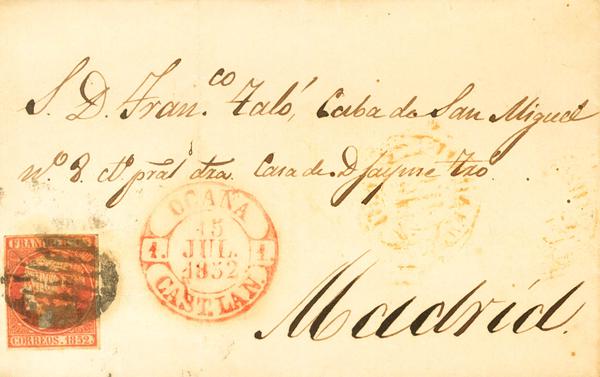 S. D. Fran.co Taló, Caba da San Miguel
nº 8. cto pral dra. Casa de D Jayme Tro
OCAÑA
15
JUL.
1852
1. 1.
CAST. LAN.
FRANCO
CORREOS. 1852.
Madrid.